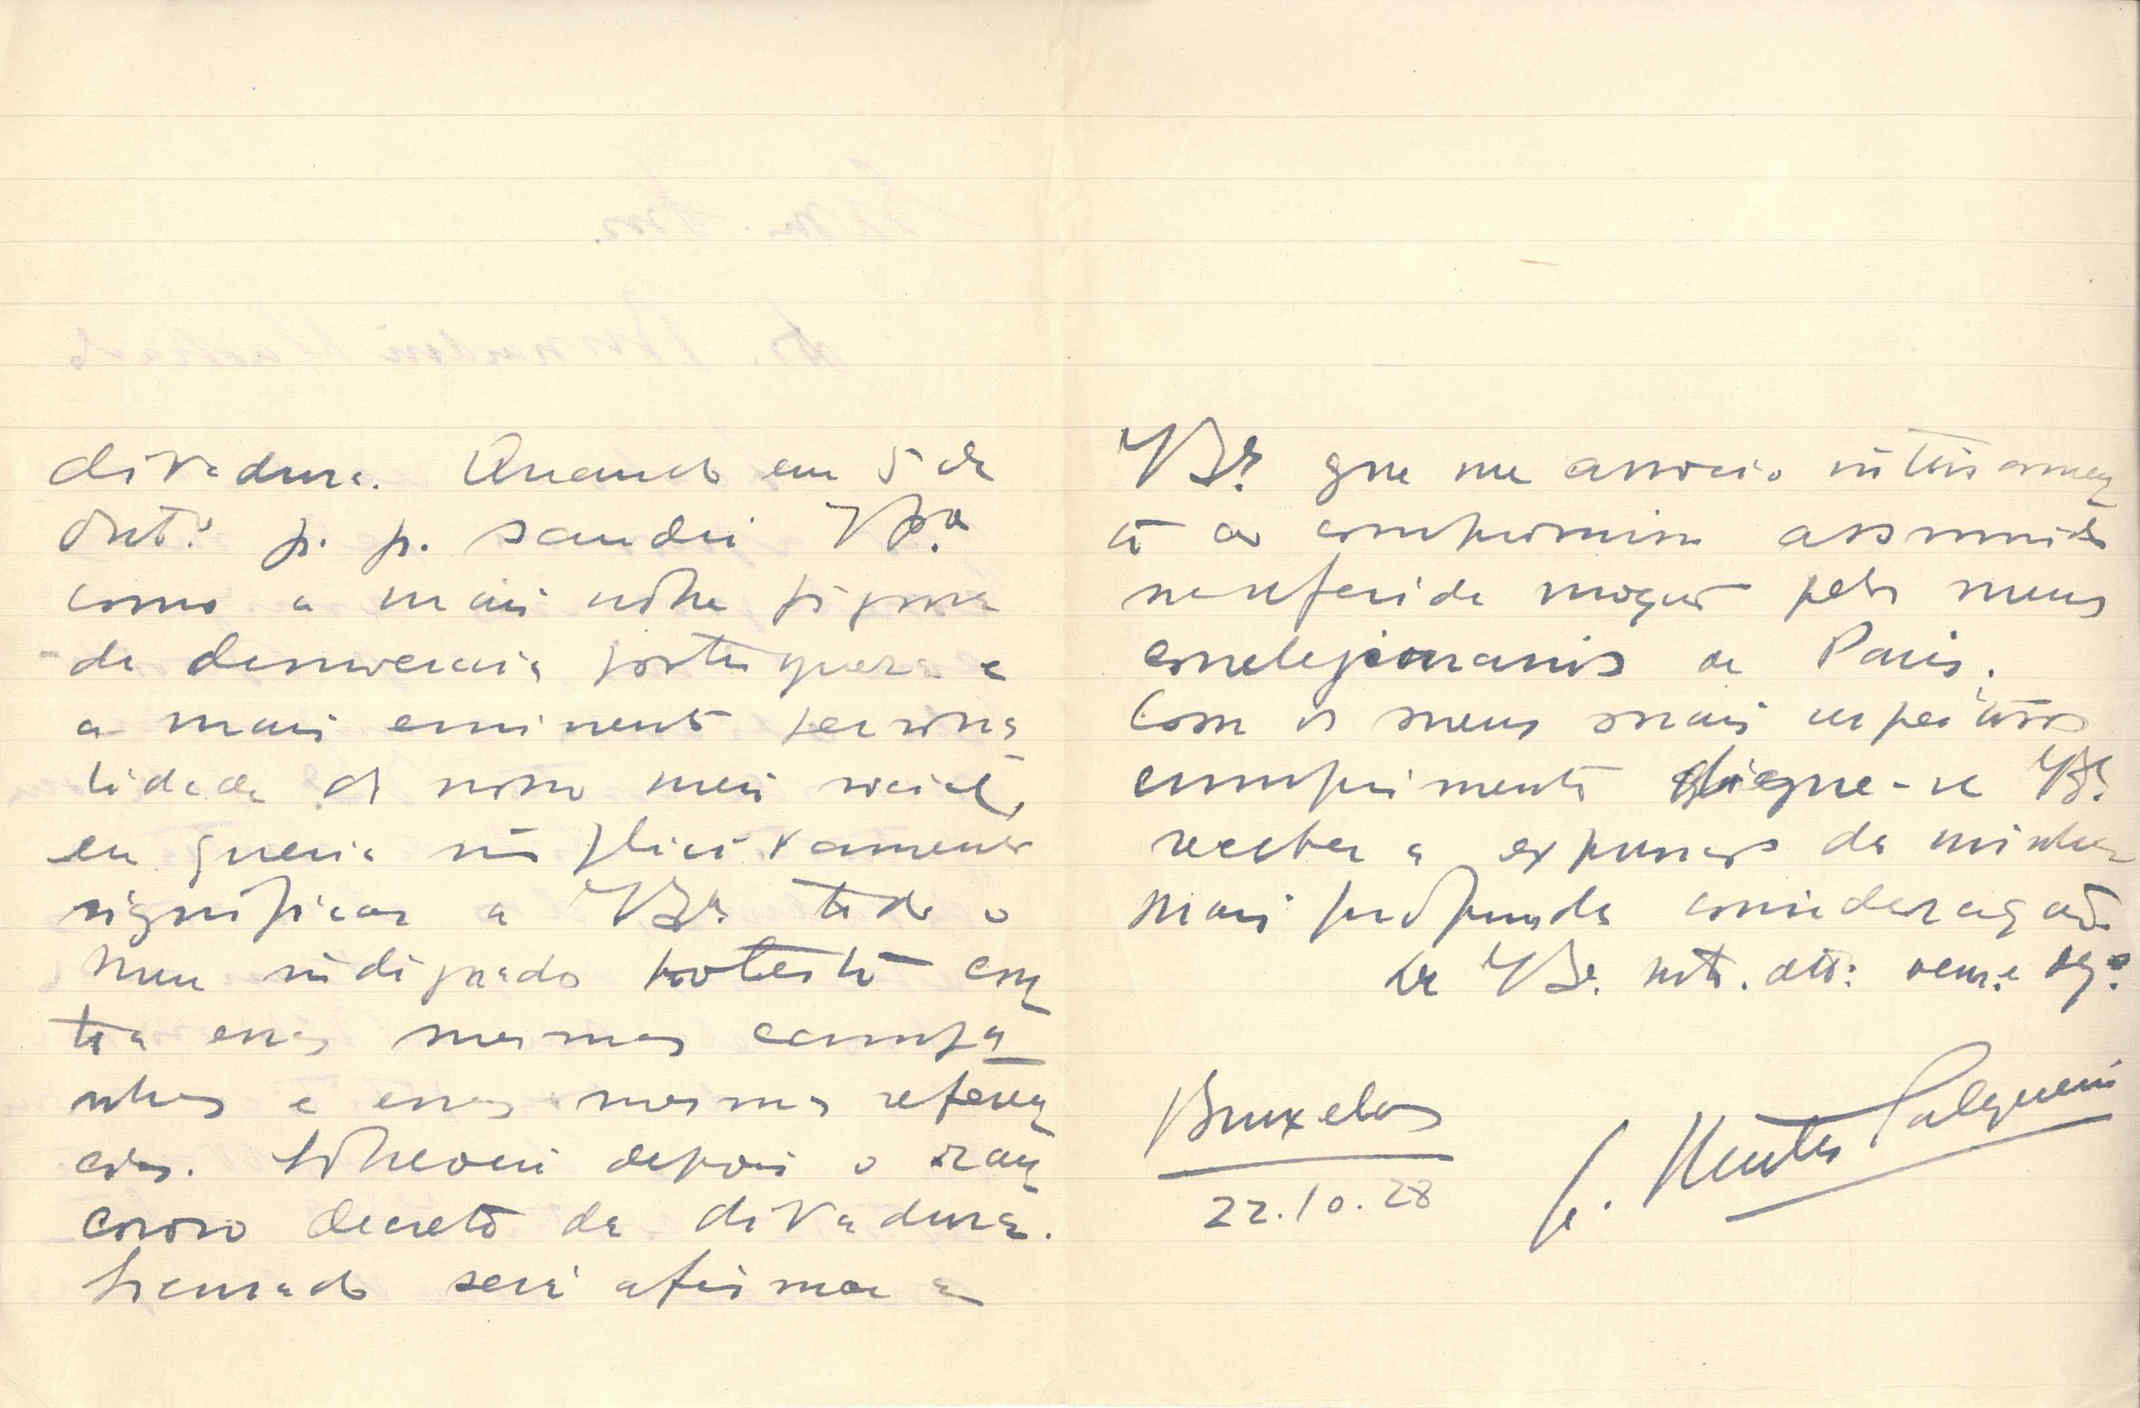 ditadura. Quando em 5 de
Outº p. p. saudei V. Exª
como a mais nobre figura
da democracia portuguesa e
a mais eminente persona
lidade do nosso meio social,
eu queria implicitamente
significar a V. Exª todo o
meu indignado protesto con
tra essas mesmas campa
nhas e essas mesmas referen
cias. Sobreveio depois o ran
coroso decreto da ditadura.
será afirmar a
V. Exª que me associo inteiramen
te ao compromisso assumido
na referida moção pelos meus
correligionarios de Paris.
Com os meus mais respeitosos
cumprimentos digne-se V. Exª
receber a expressão da minha
mais profunda consideração
De V. Exª mtº. attº: venr.
Bruxelas
22.10.28